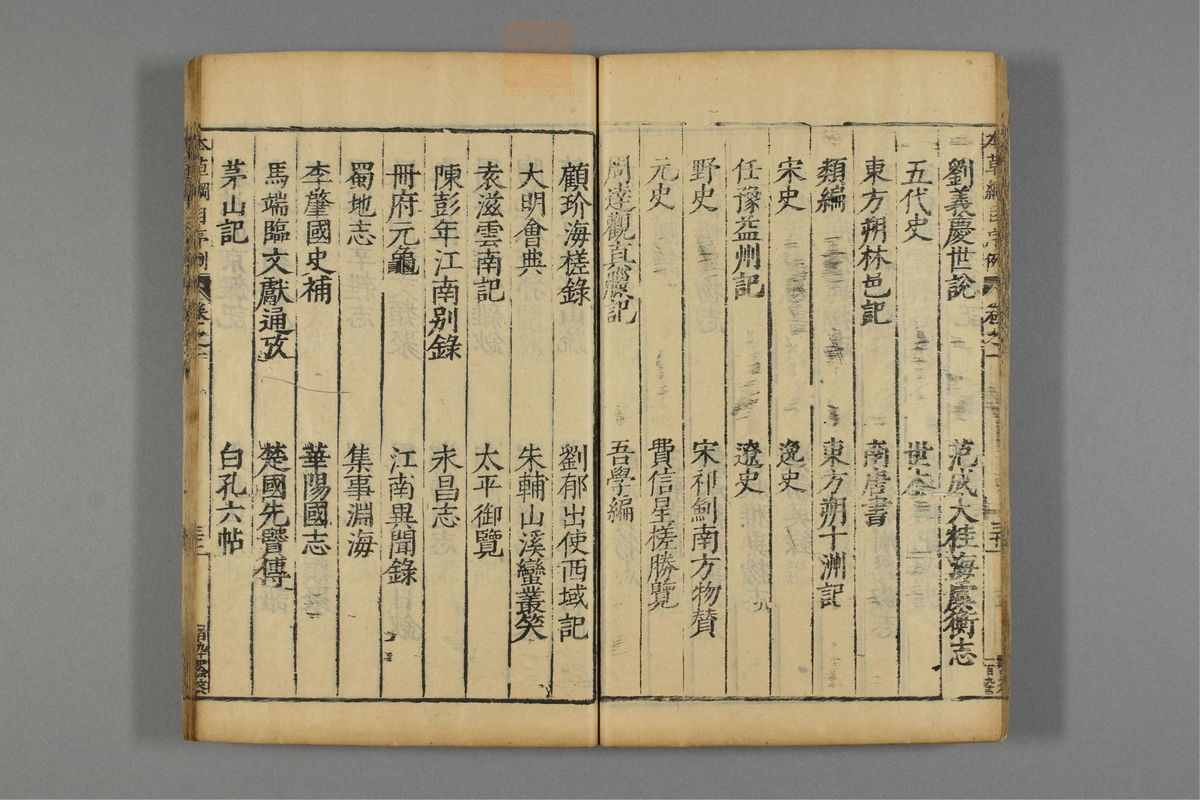 劉義慶世說 范成大桂海虞衡志
五代史 世本
東方朔林邑記 南唐書
類編 東方朔十洲記
宋史 逸史
任豫益州記 遼史
野史 宋祁劍南方物贊
元史 費信星槎勝覽
周達觀真臘記 吾學編
顧玠海槎錄 劉郁出使西域記
大明會典 朱輔山溪蠻叢笑
袁滋雲南記 太平御覽
陳彭年江南别錄 永昌志
冊府元龜 江南異聞錄
蜀地志 集事淵海
李肇國史補 華陽國志
馬端臨文獻通攷 楚國先賢傳
茅山記 白孔六帖